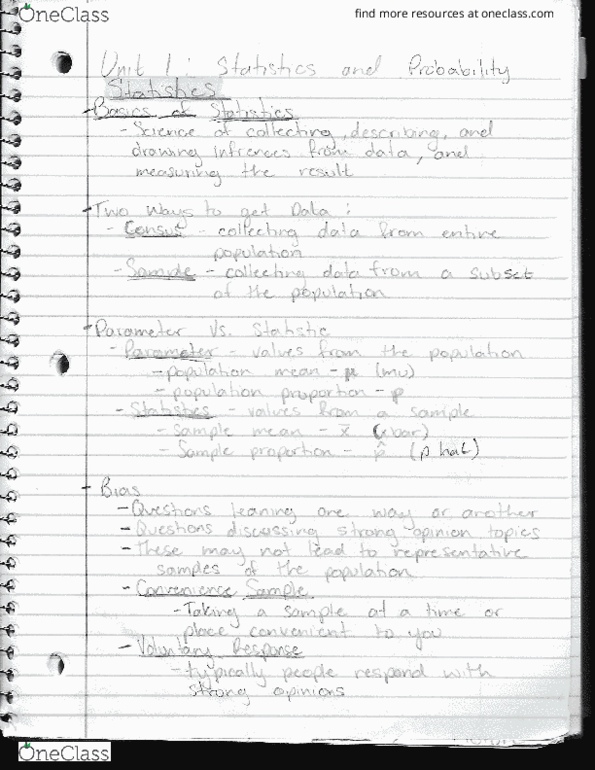 OneClass
find more resources at oneclass.com
Unit 1: Statistics and Probability
Statistics
- Basics of Statistics
- Science of collecting, describing, and
drawing infrences from data, and
measuring the result
- Two Ways to get Data:
- Consus - collecting data from entire
population
- Sample - collecting data from a subset
of the population
- Parameter Vs. Statistic
- Parameter - values from the population
- population mean - μ (mu)
- population proportion - p
- Statistics - values from a sample
- Sample mean - x̄ (x bar)
- Sample proportion - p̂ (p hat)
- Bias
- Questions leaning one way or another
- Questions discussing strong opinion topics
- These may not lead to representative
samples of the population
- Convenience Sample
- Taking a sample at a time or
place convenient to you
- Voluntary Response
- typically people respond with
strong opinions
OneClass